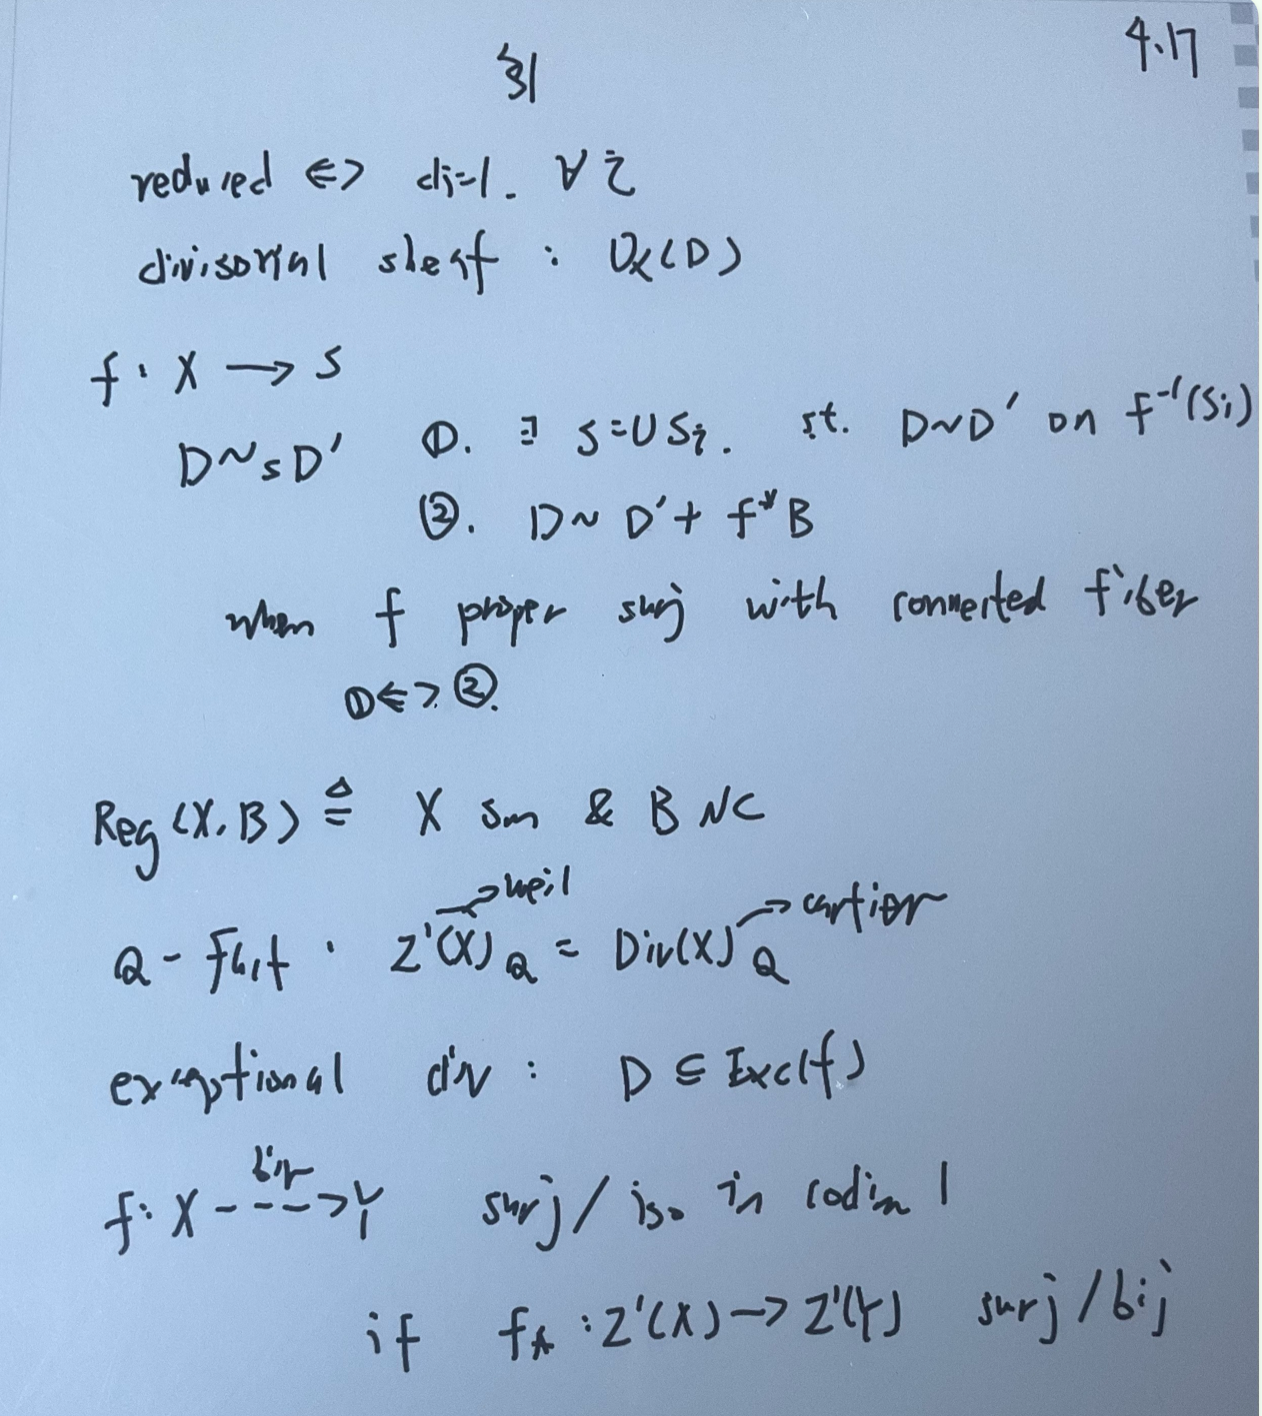 4.17
§1
reduced <=> di=1. ∀ i
divisorial sheaf : O_X(D)
f : X → S
D ~_S D' ①. ∃ S=∪S_i. st. D~D' on f^{-1}(S_i)
②. D ~ D' + f^*B
when f proper surj with connected fiber
①<=>②.
Reg (X,B) ≜ X sm & B NC
→ weil → cartier
Q-Fact. Z^1(X)_Q = Div(X)_Q
exceptional div : D ⊆ Exc(f)
f: X --bir--> Y surj / iso in codim 1
if f_* : Z^1(X) → Z^1(Y) surj / bij